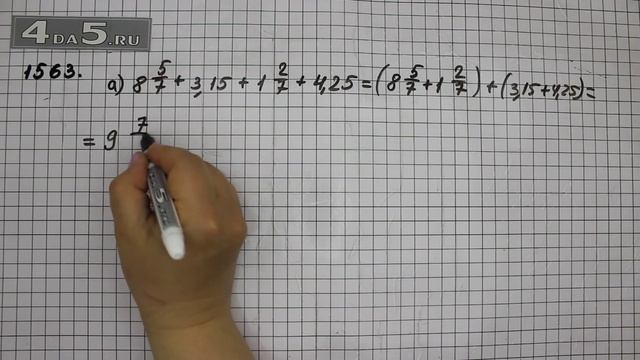 4DA5.RU
1563. а) 8 5/7 + 3,15 + 1 2/7 + 4,25 = (8 5/7 + 1 2/7) + (3,15 + 4,25) =
= 9 7/
5